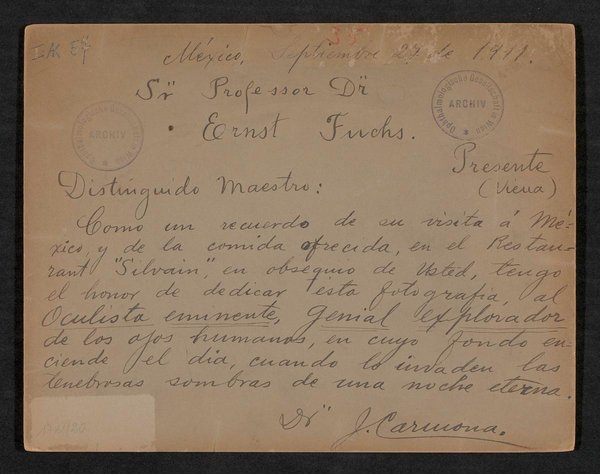 México, Septiembre 27 de 1911.
Sr Professor Dr
Ernst Fuchs.
Presente
(Viena)
Distinguido Maestro:
Como un recuerdo de su visita á Mé-
xico, y de la comida ofrecida, en el Restau-
rant "Silvain", en obsequio de Usted, tengo
el honor de dedicar esta fotografia, al
Oculista eminente, genial explorador
de los ojos humanos, en cuyo fondo en-
ciende el dia, cuando lo invaden las
tenebrosas sombras de una noche eterna.
Dr J. Carmona.
Ophthalmologische Gesellschaft in Wien
ARCHIV
Ophthalmologische Gesellschaft in Wien
ARCHIV